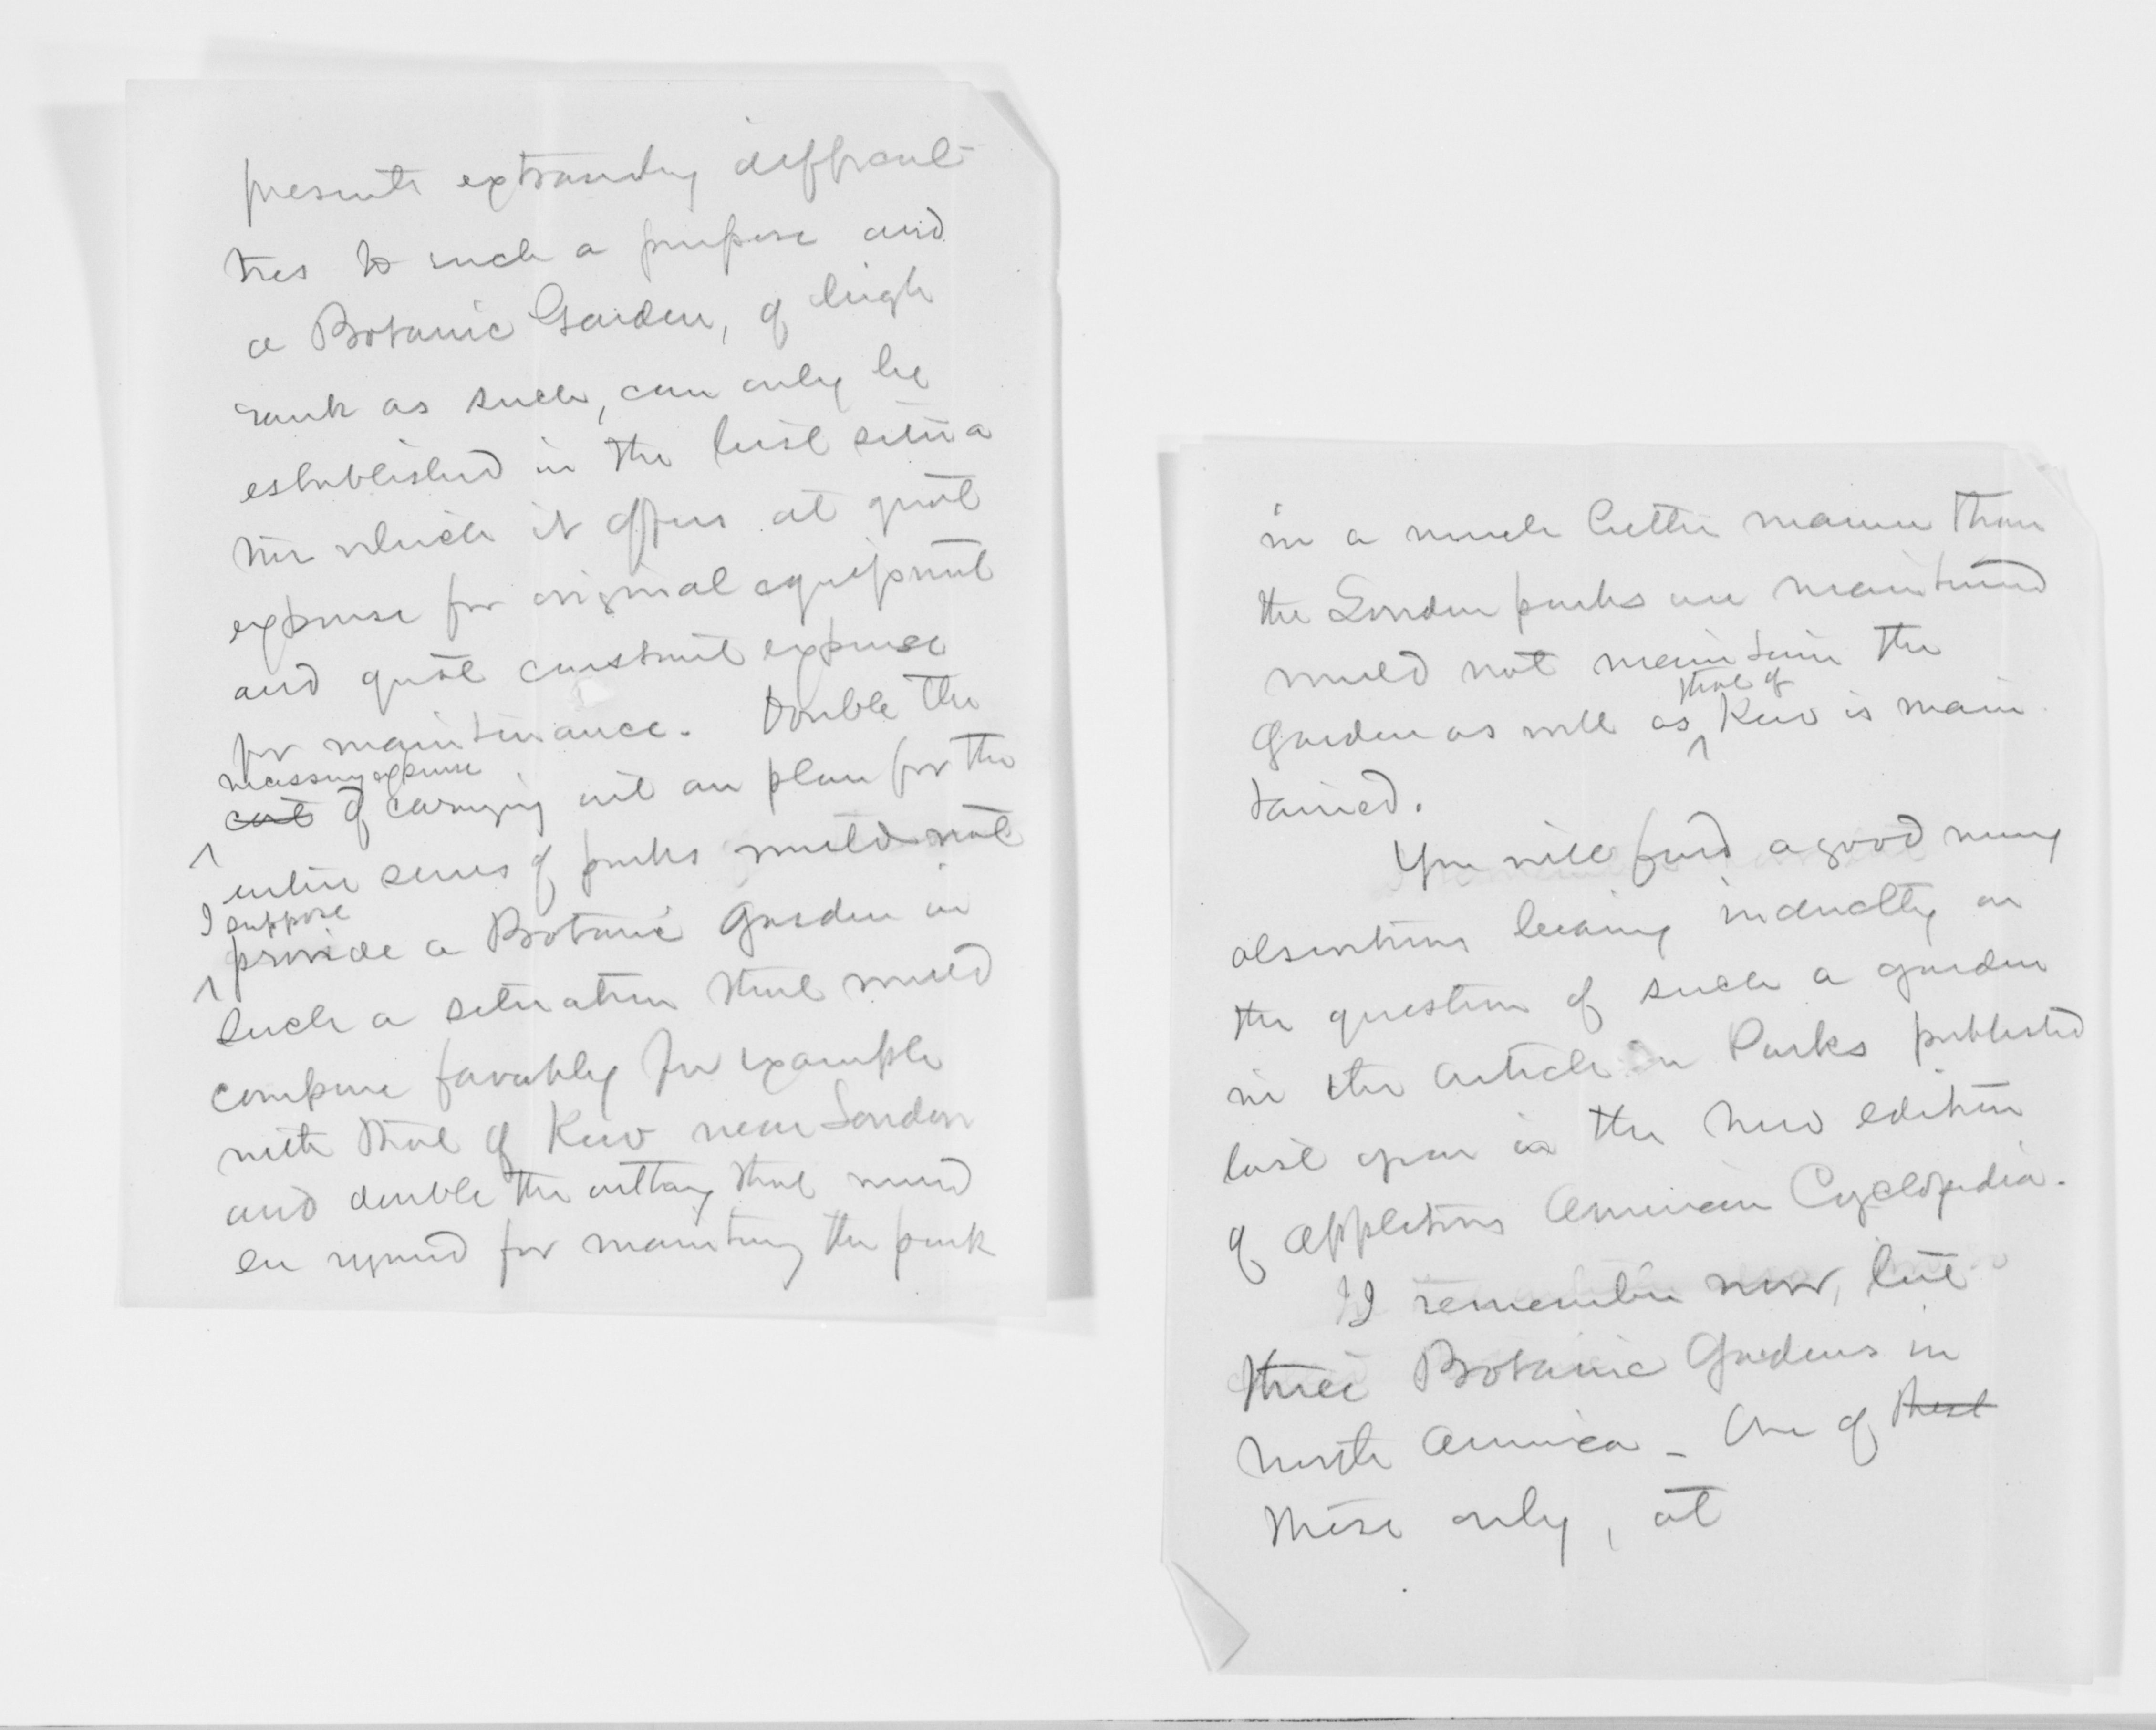 presents extraordny difficul-
ties to such a purpose and
a Botanic Garden, of high
rank as such, can only be
established in the best situa
tion which it offers at great
expense for original equipment
and great constant expense
for maintenance. Double the
necessary expense
cost of carrying out our plan for the
entire series of parks would not
I suppose
provide a Botanic Garden in
such a situation that would
compare favorably for example
with that of Kew near London
and double the outlay that would
be required for maintaing the park
in a much better manner than
the London parks are maintained
would not maintain the
that of
Garden as well as Kew is main
tained.
You will find a good many
observations bearing indirectly on
the question of such a garden
in the article on Parks published
last year in the new edition
of Appletons American Cyclopedia.
I remember now, but
three Botanic Gardens in
North America - One of these
these only, at